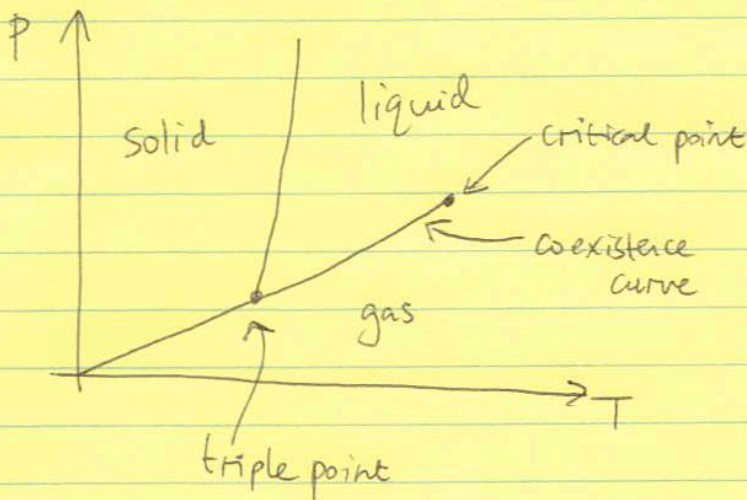 P
solid
liquid
critical point
coexistence
curve
gas
T
triple point